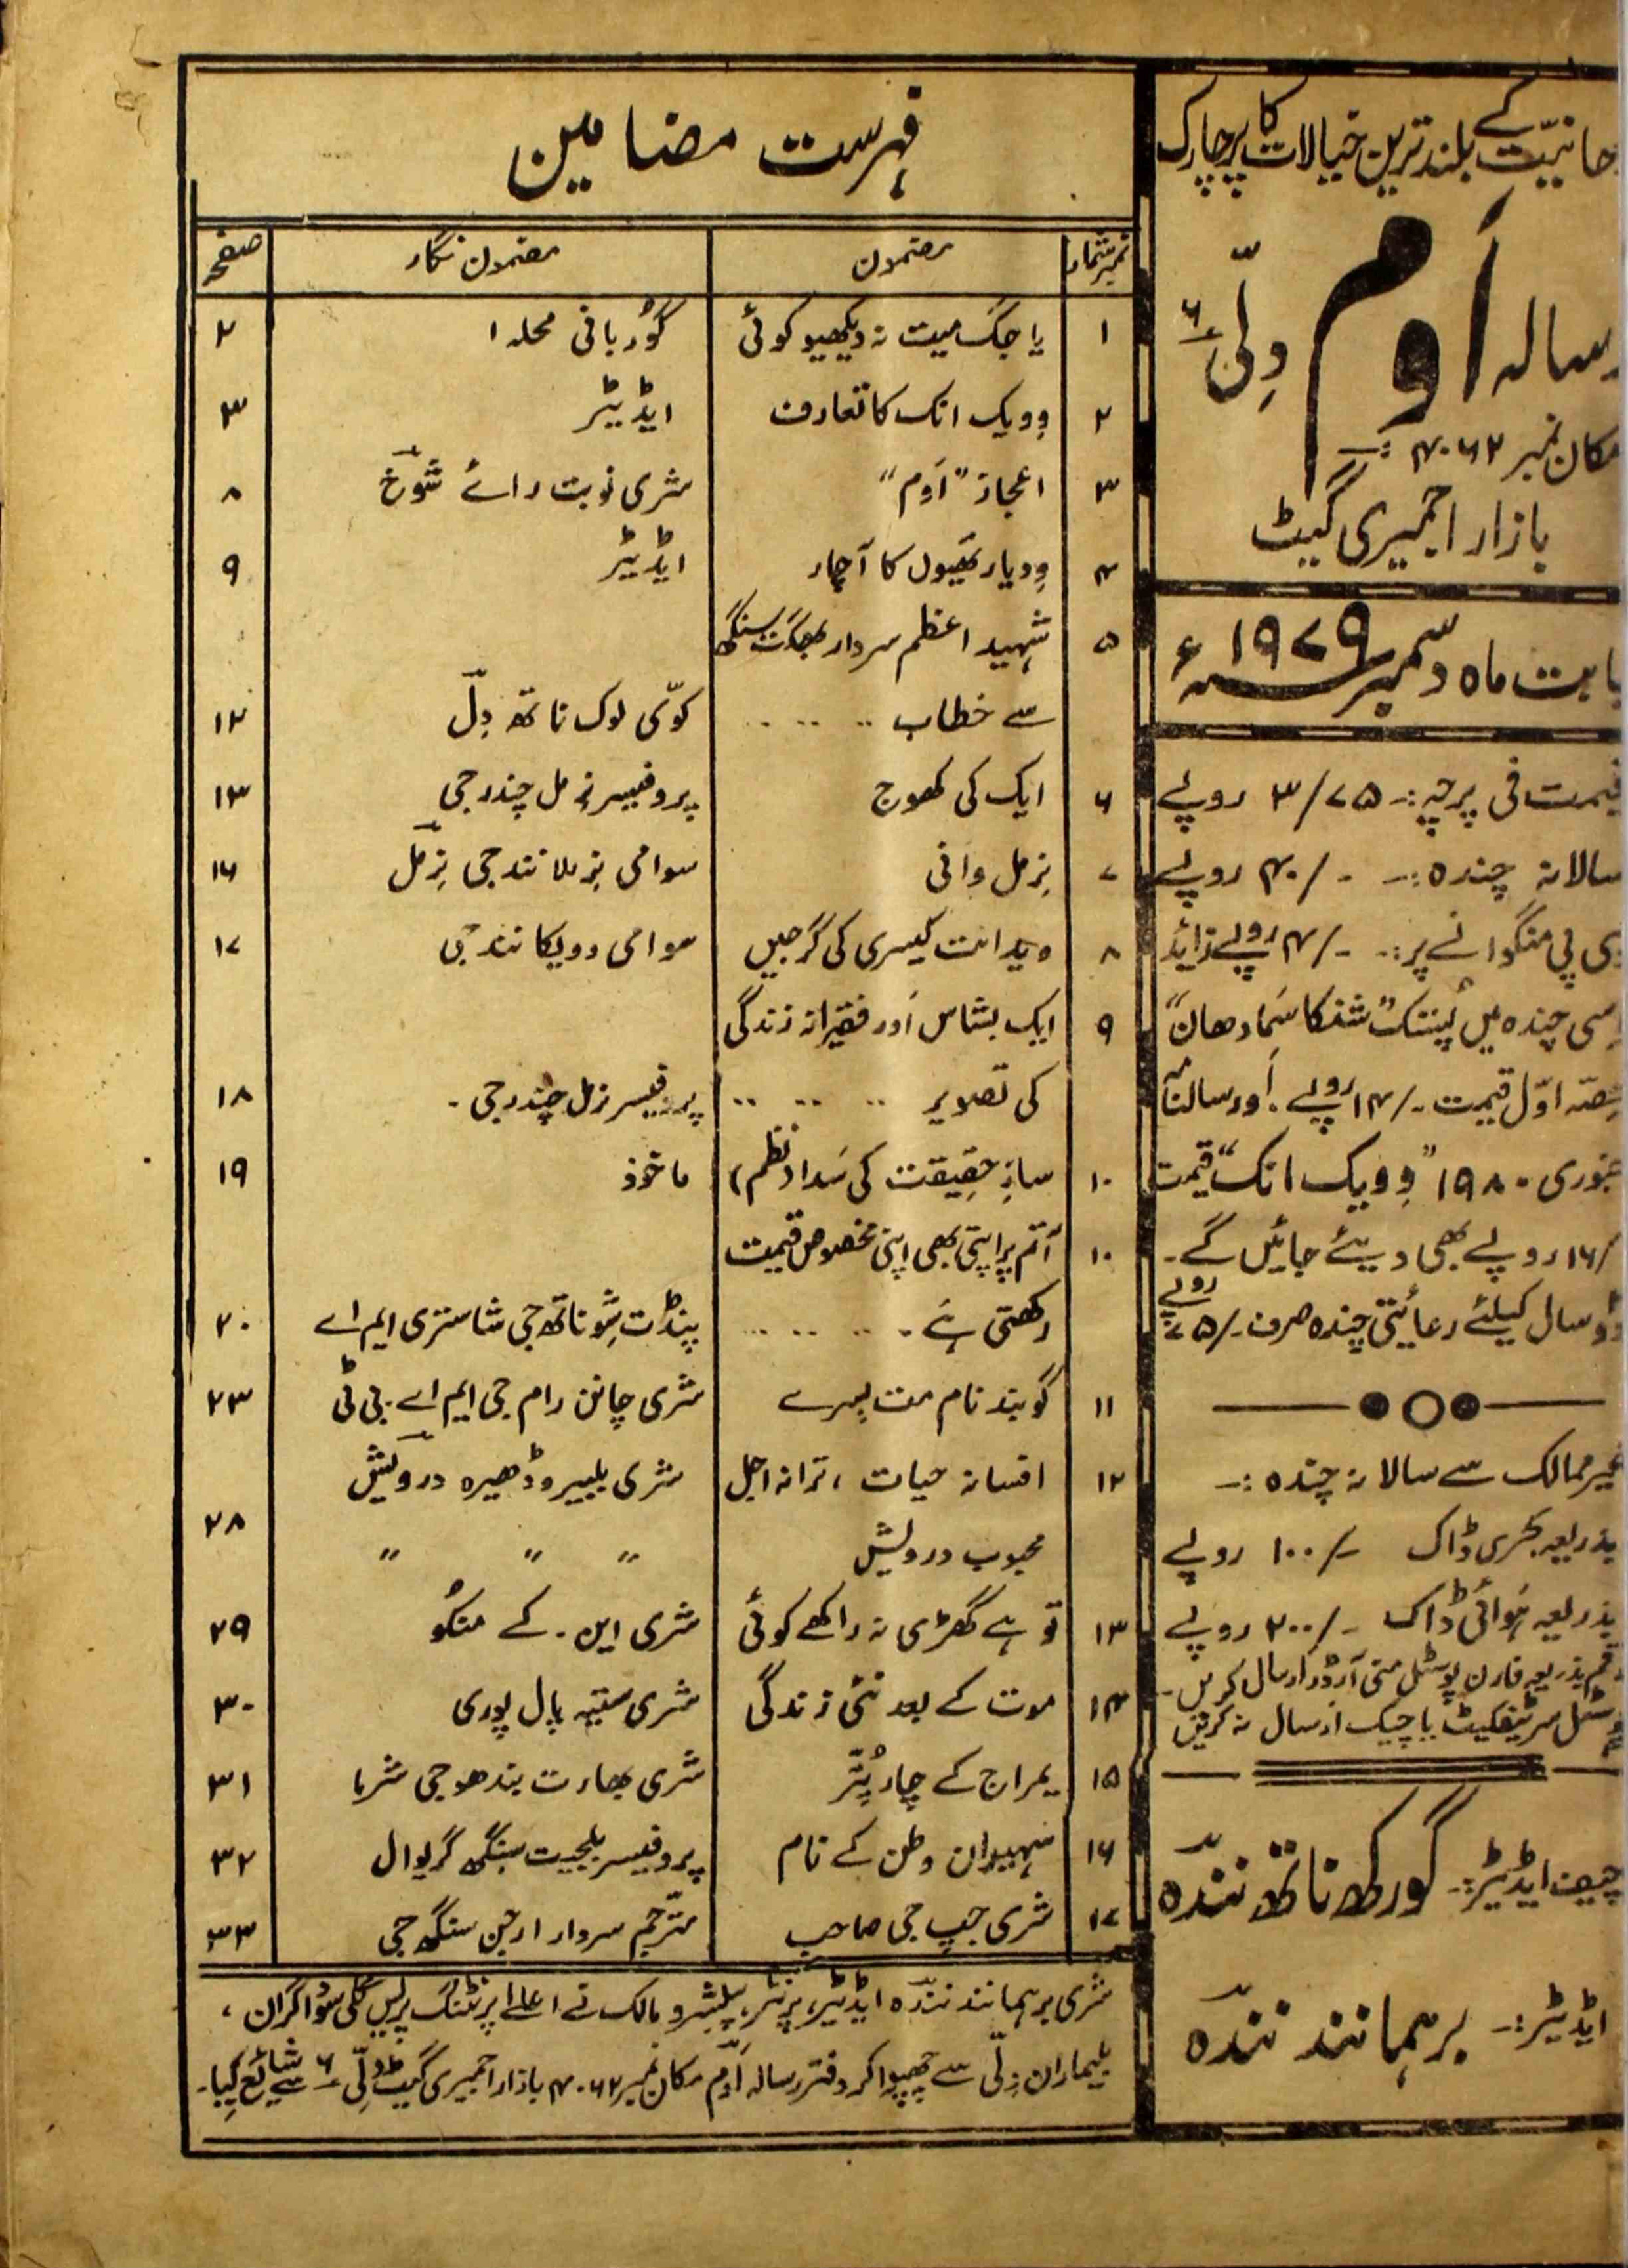 روحانیت کے بلند ترین خیالات کا پرچارک
رسالہ اوم دلی ۶
مکان نمبر ۴۰۶۲ :-
بازار اجمیری گیٹ
بابت ماہ دسمبر ۱۹۷۹ء
قیمت فی پرچہ :- ۳/۷۵ روپے
سالانہ چندہ :- ۴۰/- روپے
وی پی منگوانے پر :- ۴/- روپے زائد
اسی چندہ میں پستک "شنکا سمادھان"
حصہ اول قیمت -/۱۴ روپے۔ اور سالنامہ
جنوری ۱۹۸۰ "وویک انک" قیمت
/۱۶ روپے بھی دیئے جائیں گے۔
دو سال کیلئے رعائیتی چندہ صرف -/۷۵ روپے
غیر ممالک سے سالانہ چندہ :-
بذریعہ بحری ڈاک -/۱۰۰ روپے
بذریعہ ہوائی ڈاک -/۲۰۰ روپے
رقم بذریعہ فارن پوسٹل منی آرڈر ارسال کریں۔
پوسٹل سرٹیفکیٹ یا چیک ارسال نہ کریں
چیف ایڈیٹر:- گورکھ ناتھ نندہ
ایڈیٹر :- برہمانند نندہ
فہرست مضامین
نمبر شمار مضمون مضمون نگار صفحہ
۱ یا جگ میت نہ دیکھیو کوئی گوربانی محلہ ۱ ۲
۲ وویک انک کا تعارف ایڈیٹر ۳
۳ اعجاز "اوم" شری نوبت رائے شوخ ۸
۴ ودیارتھیوں کا آچار ایڈیٹر ۹
۵ شہید اعظم سردار بھگت سنگھ
سے خطاب .. .. .. کوی لوک ناتھ دل ۱۲
۶ ایک کی کھوج پروفیسر نرمل چندر جی ۱۳
۷ نرمل وانی سوامی نرملانند جی نرمل ۱۶
۸ ویدانت کیسری کی گرجیں سوامی وویکانند جی ۱۷
۹ ایک بشاس اور فقیرانہ زندگی
کی تصویر .. .. .. پروفیسر نرمل چندر جی۔ ۱۸
۱۰ ساز حقیقت کی سدا (نظم) ماخوذ ۱۹
۱۰ آتم پراپتی بھی اپنی مخصوص قیمت
رکھتی ہے۔ .. .. ... پنڈت شوناتھ جی شاستری ایم اے ۲۰
۱۱ گوبند نام مت بسرے شری چانن رام جی ایم اے۔ بی ٹی ۲۳
۱۲ افسانہ حیات، ترانہ اجل شری بلبیر وڈھیرہ درویش
محبوب درویش " " " ۲۸
۱۳ تو ہے گھڑی نہ راکھے کوئی شری این۔ کے منکو ۲۹
۱۴ موت کے بعد نئی زندگی شری ستیہ پال پوری ۳۰
۱۵ یمراج کے چار پتر شری بھارت بندھو جی شرما ۳۱
۱۶ شہیدان وطن کے نام پروفیسر بلجیت سنگھ گریوال ۳۲
۱۷ شری جپ جی صاحب مترجم سردار ارجن سنگھ جی ۳۳
شری برہمانند نندہ ایڈیٹر، پرنٹر، پبلشر و مالک نے اعلےٰ پرنٹنگ پریس گلی سوداگران،
بلیماران دلی سے چھپوا کر دفتر رسالہ اوم مکان نمبر ۴۰۶۲ بازار اجمیری گیٹ دلی ۶ سے شائع کیا۔